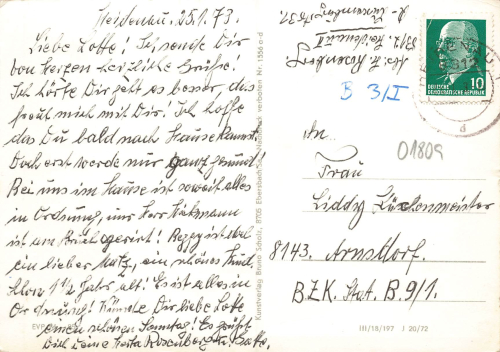 Heidenau, 25.1.73.
Liebe Lotte! Ich sende Dir
von Herzen herzliche Grüße!
Ich hörte Dir geht es besser, das
freut mich mit Dir! Ich hoffe
das Du bald nach Hause kannst.
Doch erst werde nur ganz gesund!
Bei uns im Hause ist soweit alles
in Ordnung, nur Herr
ist am
ein lieber Matz, ein schönes Kind,
schon 1½ Jahr alt! Es ist alles in
Ordnung! Wünsche Dir liebe Lotte
einen schönen Sonntag! Es grüßt
Dich Deine Herta Rosenberg
Kunstverlag Bruno Scholz, 8705 Ebersbach/Sa. Nachdruck verboten Nr. 1556 a-d
Abs. H. Rosenberg
8312 Heidenau II
B 3/I
DEUTSCHE
DEMOKRATISCHE REPUBLIK
10
d
01809
An..
Frau
Liddy Küchenmeister
8143. Arnsdorf.
BZK. Stat. B.9/1.
III/18/197 J 20/72